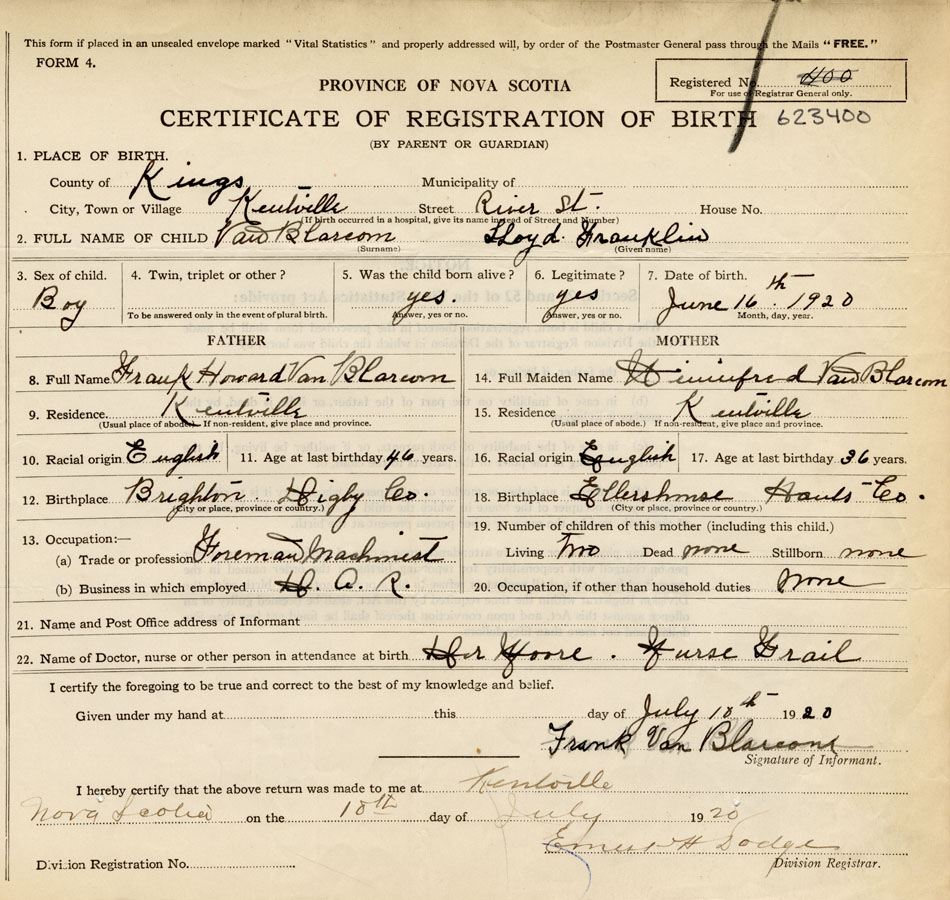 This form if placed in an unsealed envelope marked "Vital Statistics" and properly addressed will, by order of the Postmaster General pass through the Mails "FREE."
FORM 4.
Registered No. 400
For use of Registrar General only.
PROVINCE OF NOVA SCOTIA
CERTIFICATE OF REGISTRATION OF BIRTH 623400
(BY PARENT OR GUARDIAN)
1. PLACE OF BIRTH.
County of Kings Municipality of
City, Town or Village Kentville Street River St. House No.
(If birth occurred in a hospital, give its name instead of Street and Number)
2. FULL NAME OF CHILD Van Blarcom Lloyd Franklin
(Surname) (Given name)
3. Sex of child. 4. Twin, triplet or other? 5. Was the child born alive? 6. Legitimate? 7. Date of birth.
Boy yes. yes June 16th. 1920
To be answered only in the event of plural birth. Answer, yes or no. Answer, yes or no. Month, day, year.
FATHER MOTHER
8. Full Name Frank Howard Van Blarcom 14. Full Maiden Name Winnifred Van Blarcom
9. Residence. Kentville 15. Residence Kentville
(Usual place of abode). If non-resident, give place and province. (Usual place of abode.) If non-resident, give place and province.
10. Racial origin English 11. Age at last birthday 46 years. 16. Racial origin English 17. Age at last birthday 36 years.
12. Birthplace Brighton. Digby Co. 18. Birthplace Ellershouse Hants Co.
(City or place, province or country.) (City or place, province or country.)
19. Number of children of this mother (including this child.)
13. Occupation:—
(a) Trade or profession Foreman Machinist Living Two Dead none Stillborn none
(b) Business in which employed D. A. R. 20. Occupation, if other than household duties None
21. Name and Post Office address of Informant
22. Name of Doctor, nurse or other person in attendance at birth Dr Moore. Nurse Grail
I certify the foregoing to be true and correct to the best of my knowledge and belief.
Given under my hand at this day of July 18th 1920
Frank Van Blarcom
Signature of Informant.
I hereby certify that the above return was made to me at Kentville
Nova Scotia on the 18th day of July 1920
Ernest H Dodge
Division Registration No. Division Registrar.